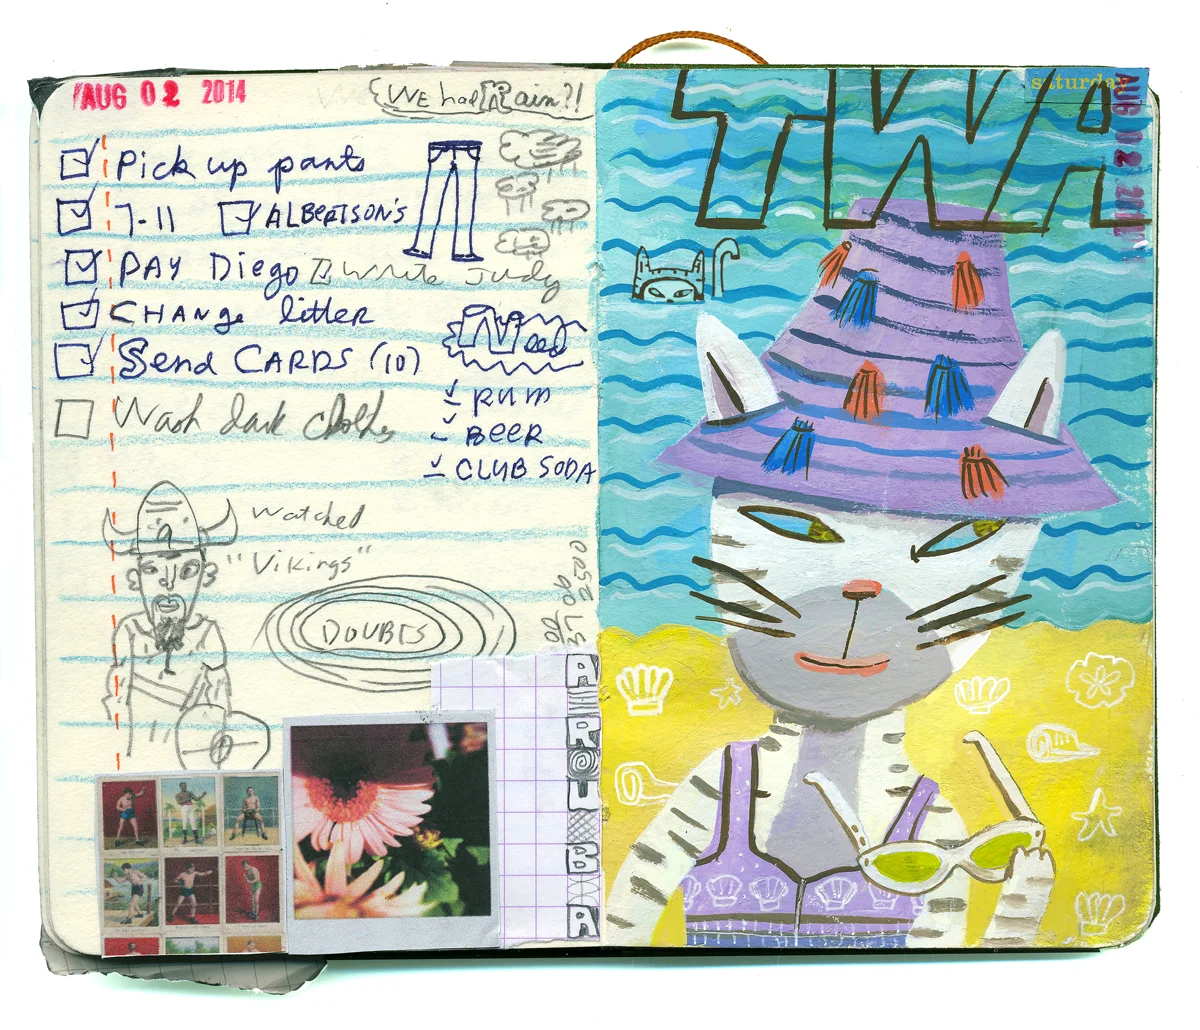 AUG 02 2014
WE had Rain?!
Pick up pants
7-11 ALBERTSON'S
PAY Diego Write Judy
CHANge litter
Send CARDS (10)
Need
RUM
Wash dark clothes
BEER
CLUB SODA
Watched
"Vikings"
DOUBTS
ARRIBA
TWA
saturday
AUG 02 2014